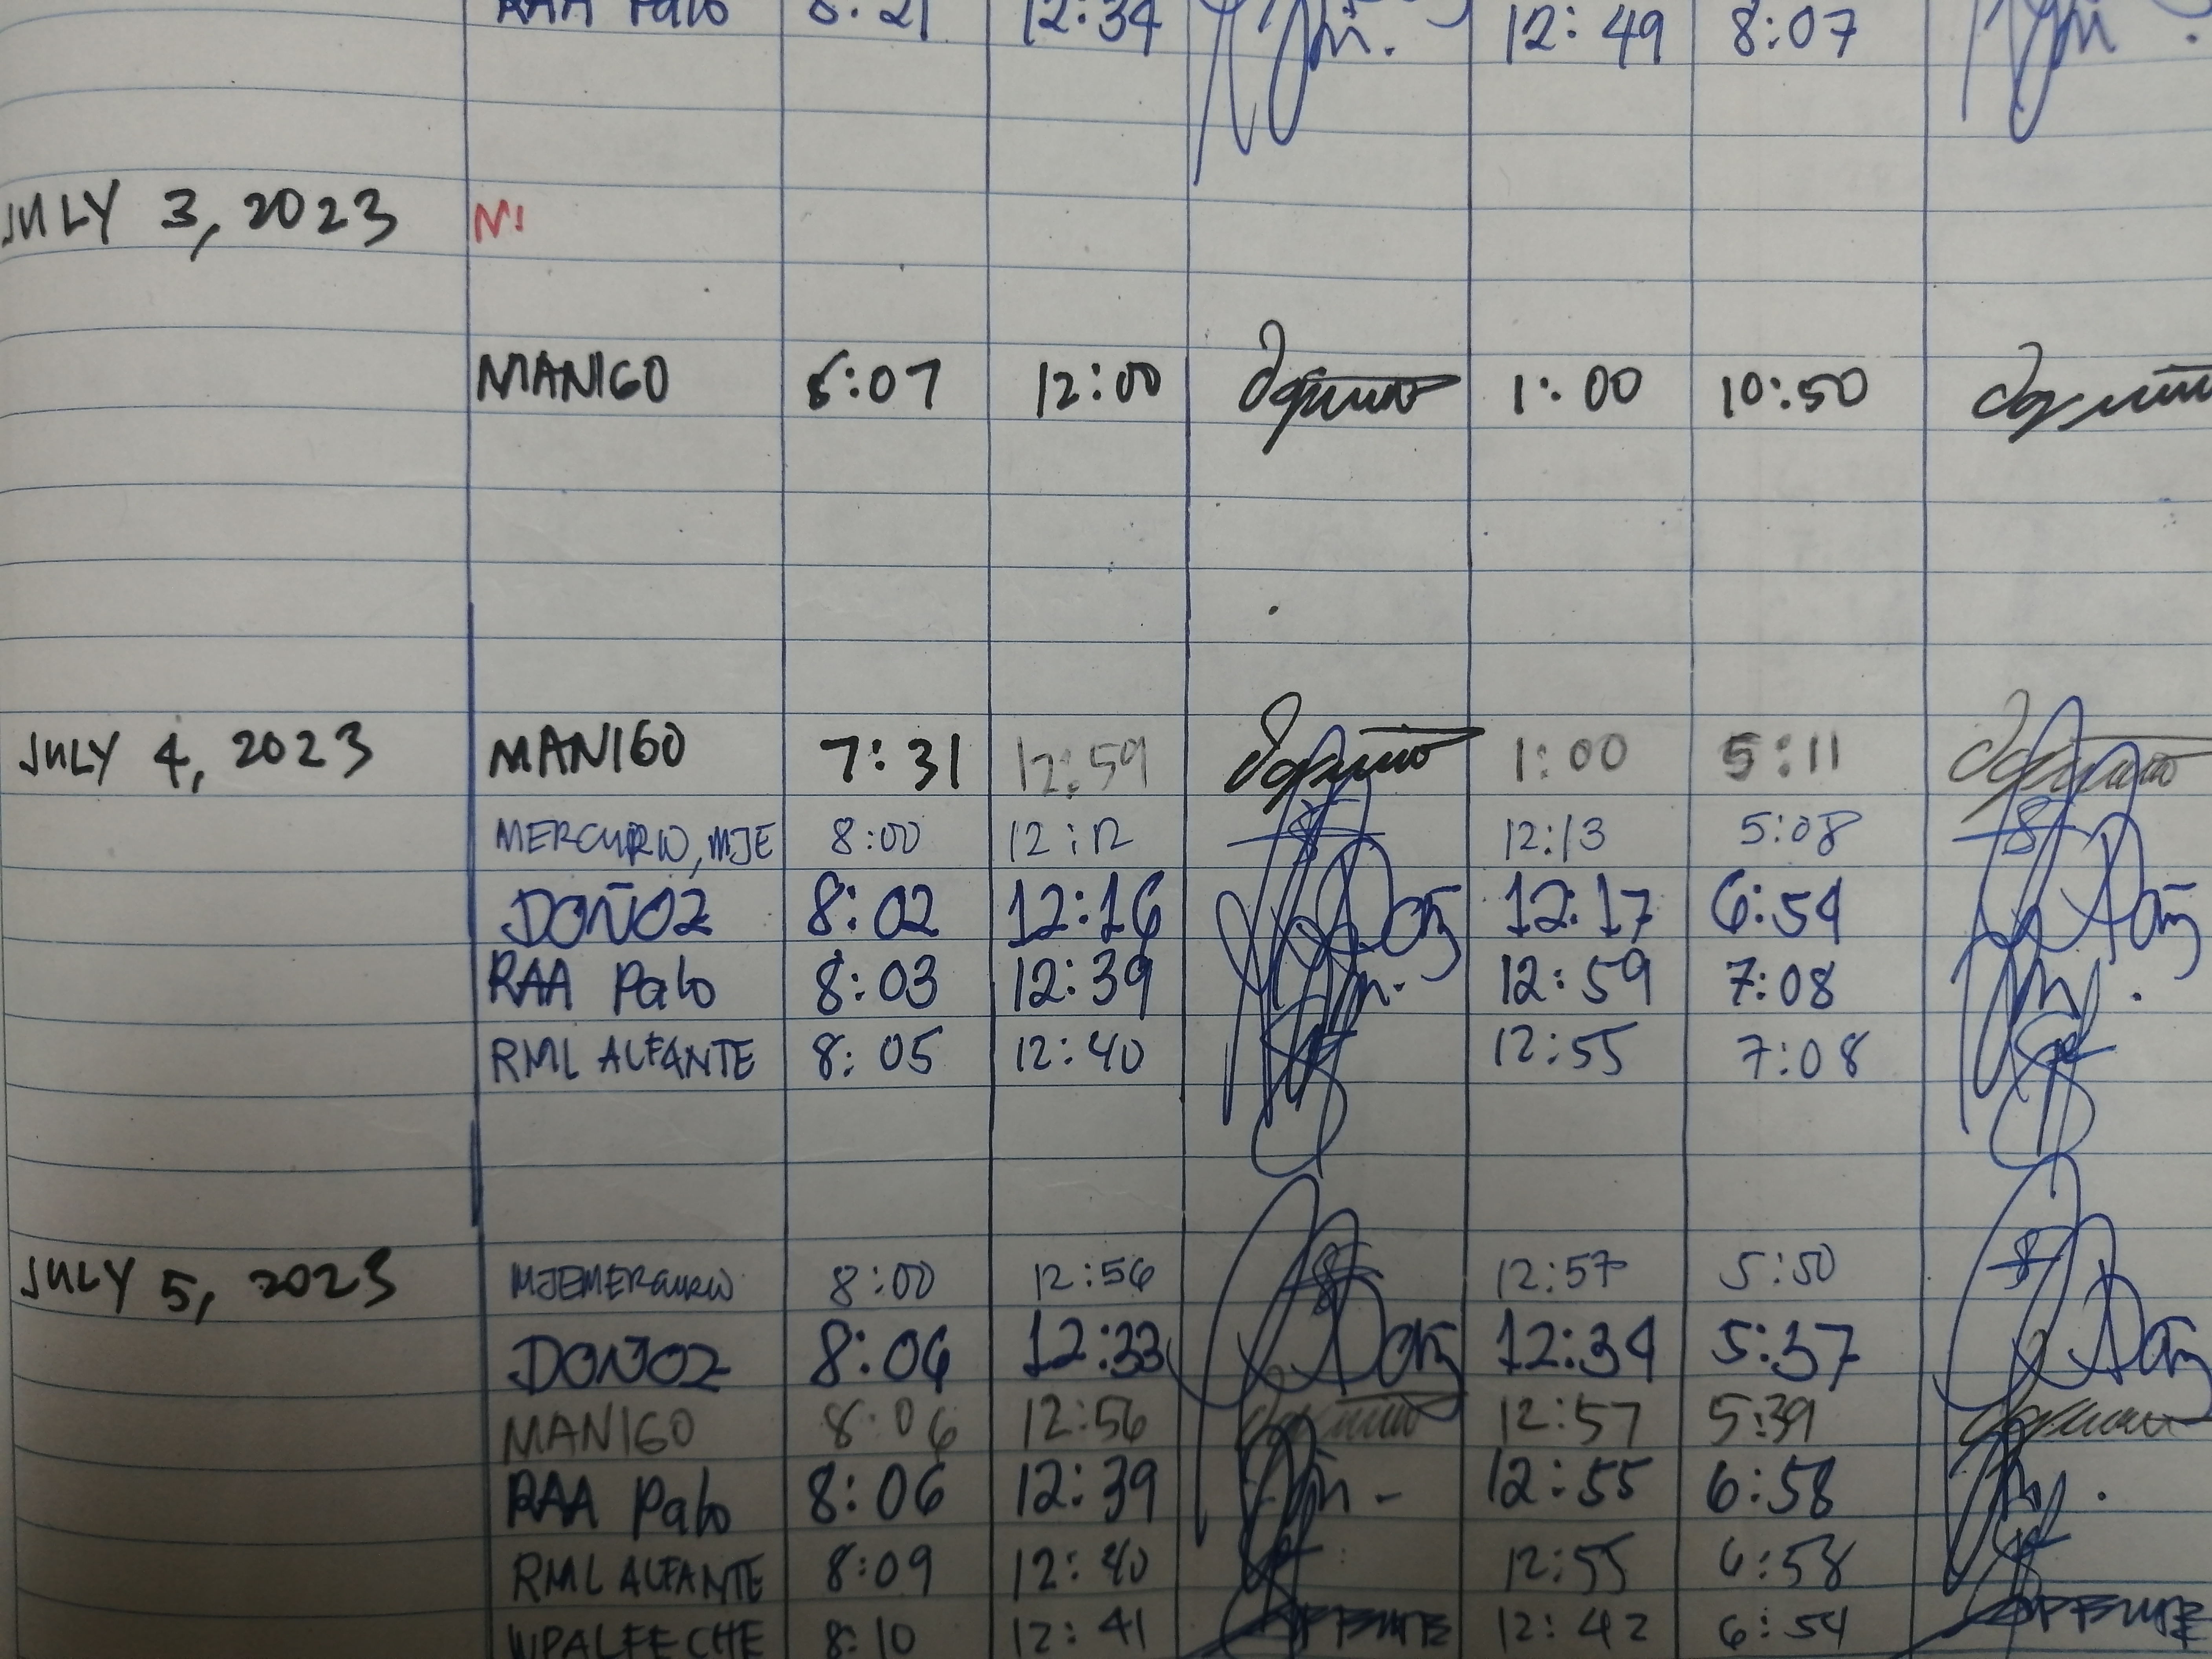 RAA Palo 8:21 12:34 12:49 8:07
JULY 3, 2023
MANIGO 12:00 1:00 10:50
JULY 4, 2023 MANIGO 7:31 12:59 1:00 5:11
MERCURIO, MJE 8:00 12:12 12:13 5:08
DOÑOZ 8:02 12:16 12:17 6:54
RAA Palo 8:03 12:39 12:59 7:08
RML ALFANTE 8:05 12:40 12:55 7:08
JULY 5, 2023 MJEMERCURIO 8:00 12:56 12:57 5:50
DOÑOZ 8:06 12:33 12:34 5:37
MANIGO 8:06 12:56 12:57 5:39
RAA Palo 8:06 12:39 12:55 6:58
RML ALFANTE 8:09 12:40 12:55 6:58
WPALFECHE 8:10 12:41 12:42 6:54